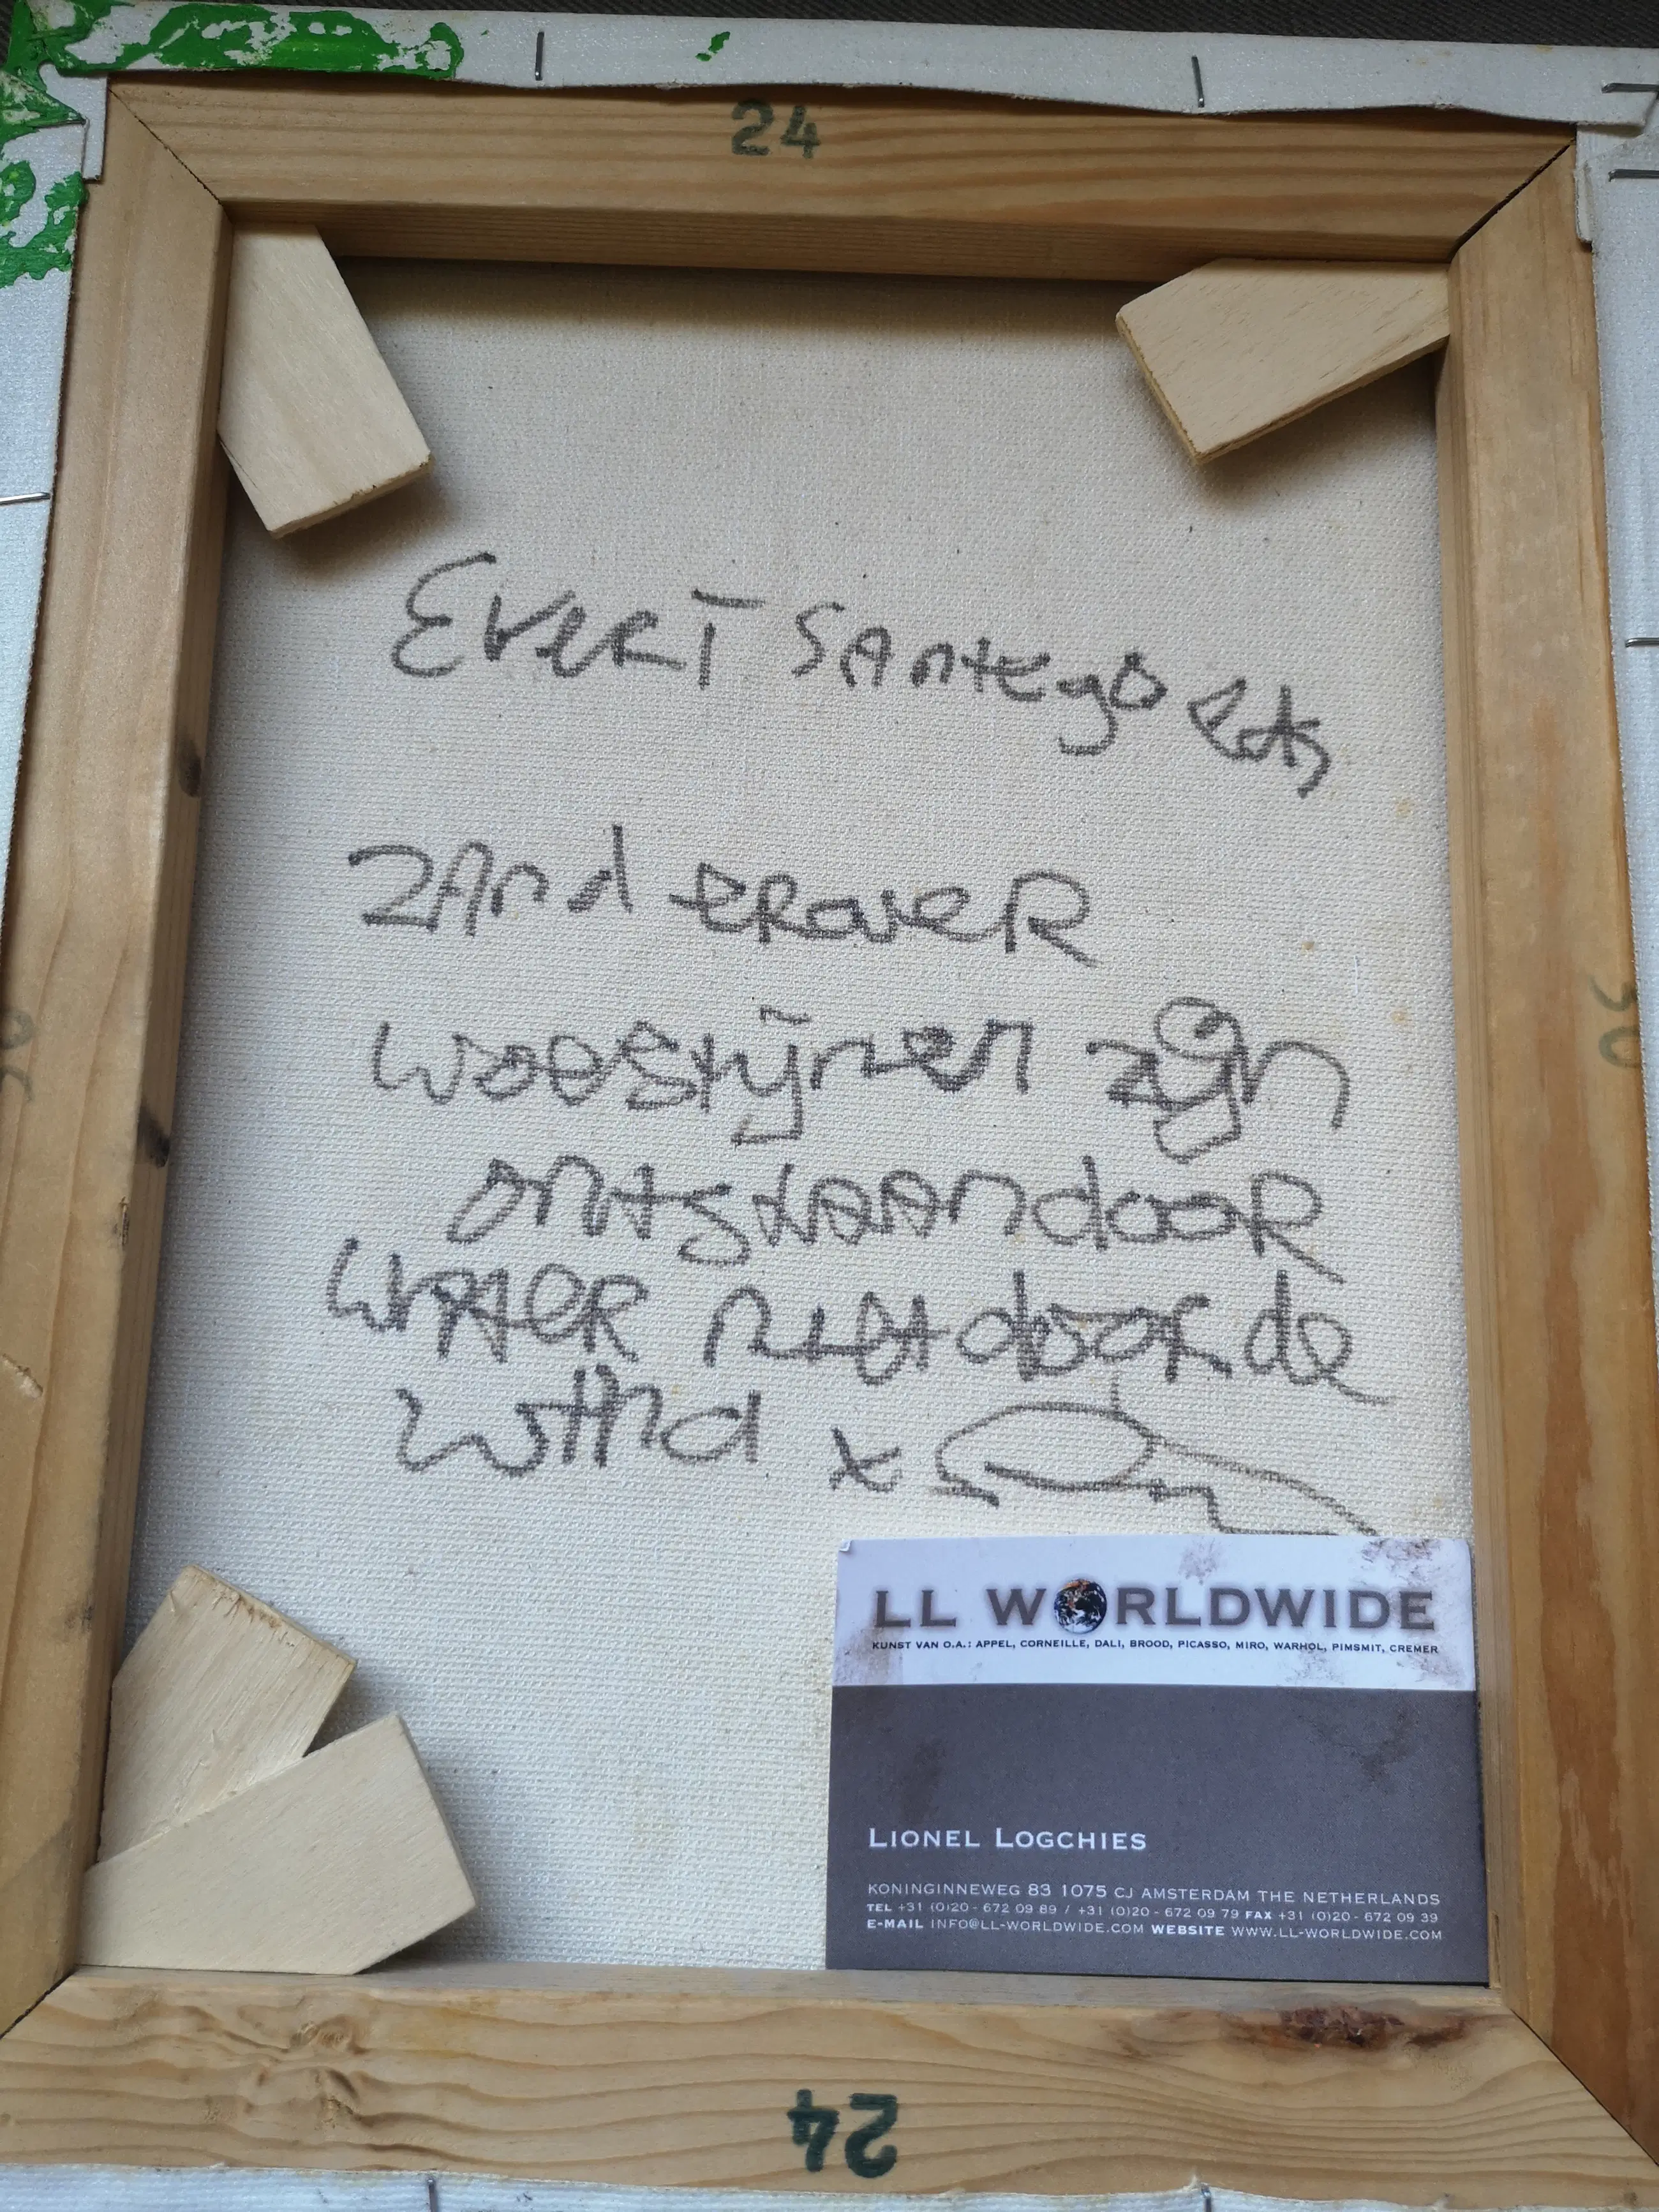 24
EVERT SANTEGO
ZAND EROVER
WOESTIJNEN ZIJN
ONTSTAAN DOOR
WATER NIET DOOR DE
WIND X
30
LL WORLDWIDE
KUNST VAN O.A.: APPEL, CORNEILLE, DALI, BROOD, PICASSO, MIRO, WARHOL, PIMSMIT, CREMER
LIONEL LOGCHIES
KONINGINNEWEG 83 1075 CJ AMSTERDAM THE NETHERLANDS
TEL +31 (0)20 - 672 09 89 / +31 (0)20 - 672 09 79 FAX +31 (0)20 - 672 09 39
E-MAIL INFO@LL-WORLDWIDE.COM WEBSITE WWW.LL-WORLDWIDE.COM
24